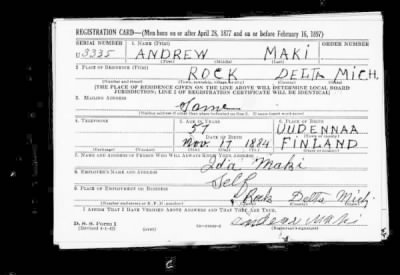 REGISTRATION CARD—(Men born on or after April 28, 1877 and on or before February 16, 1897)
SERIAL NUMBER 1. NAME (Print) ORDER NUMBER
U 3335 ANDREW MAKI
(First) (Middle) (Last)
2. PLACE OF RESIDENCE (Print)
ROCK DELTA MICH.
(Number and street) (Town, township, village, or city) (County) (State)
[THE PLACE OF RESIDENCE GIVEN ON THE LINE ABOVE WILL DETERMINE LOCAL BOARD
JURISDICTION; LINE 2 OF REGISTRATION CERTIFICATE WILL BE IDENTICAL]
3. MAILING ADDRESS
Same
4. TELEPHONE 5. AGE IN YEARS 6. PLACE OF BIRTH
57 UUDENNAA
DATE OF BIRTH
Nov. 17 1884 FINLAND
7. NAME AND ADDRESS OF PERSON WHO WILL ALWAYS KNOW YOUR ADDRESS
Ida Maki
8. EMPLOYER'S NAME AND ADDRESS
Self
9. PLACE OF EMPLOYMENT OR BUSINESS
Rock Delta Mich.
(Number and street or R. F. D. number) (Town) (County) (State)
I AFFIRM THAT I HAVE VERIFIED ABOVE ANSWERS AND THAT THEY ARE TRUE.
D. S. S. Form 1
(Revised 4-1-42) Maki